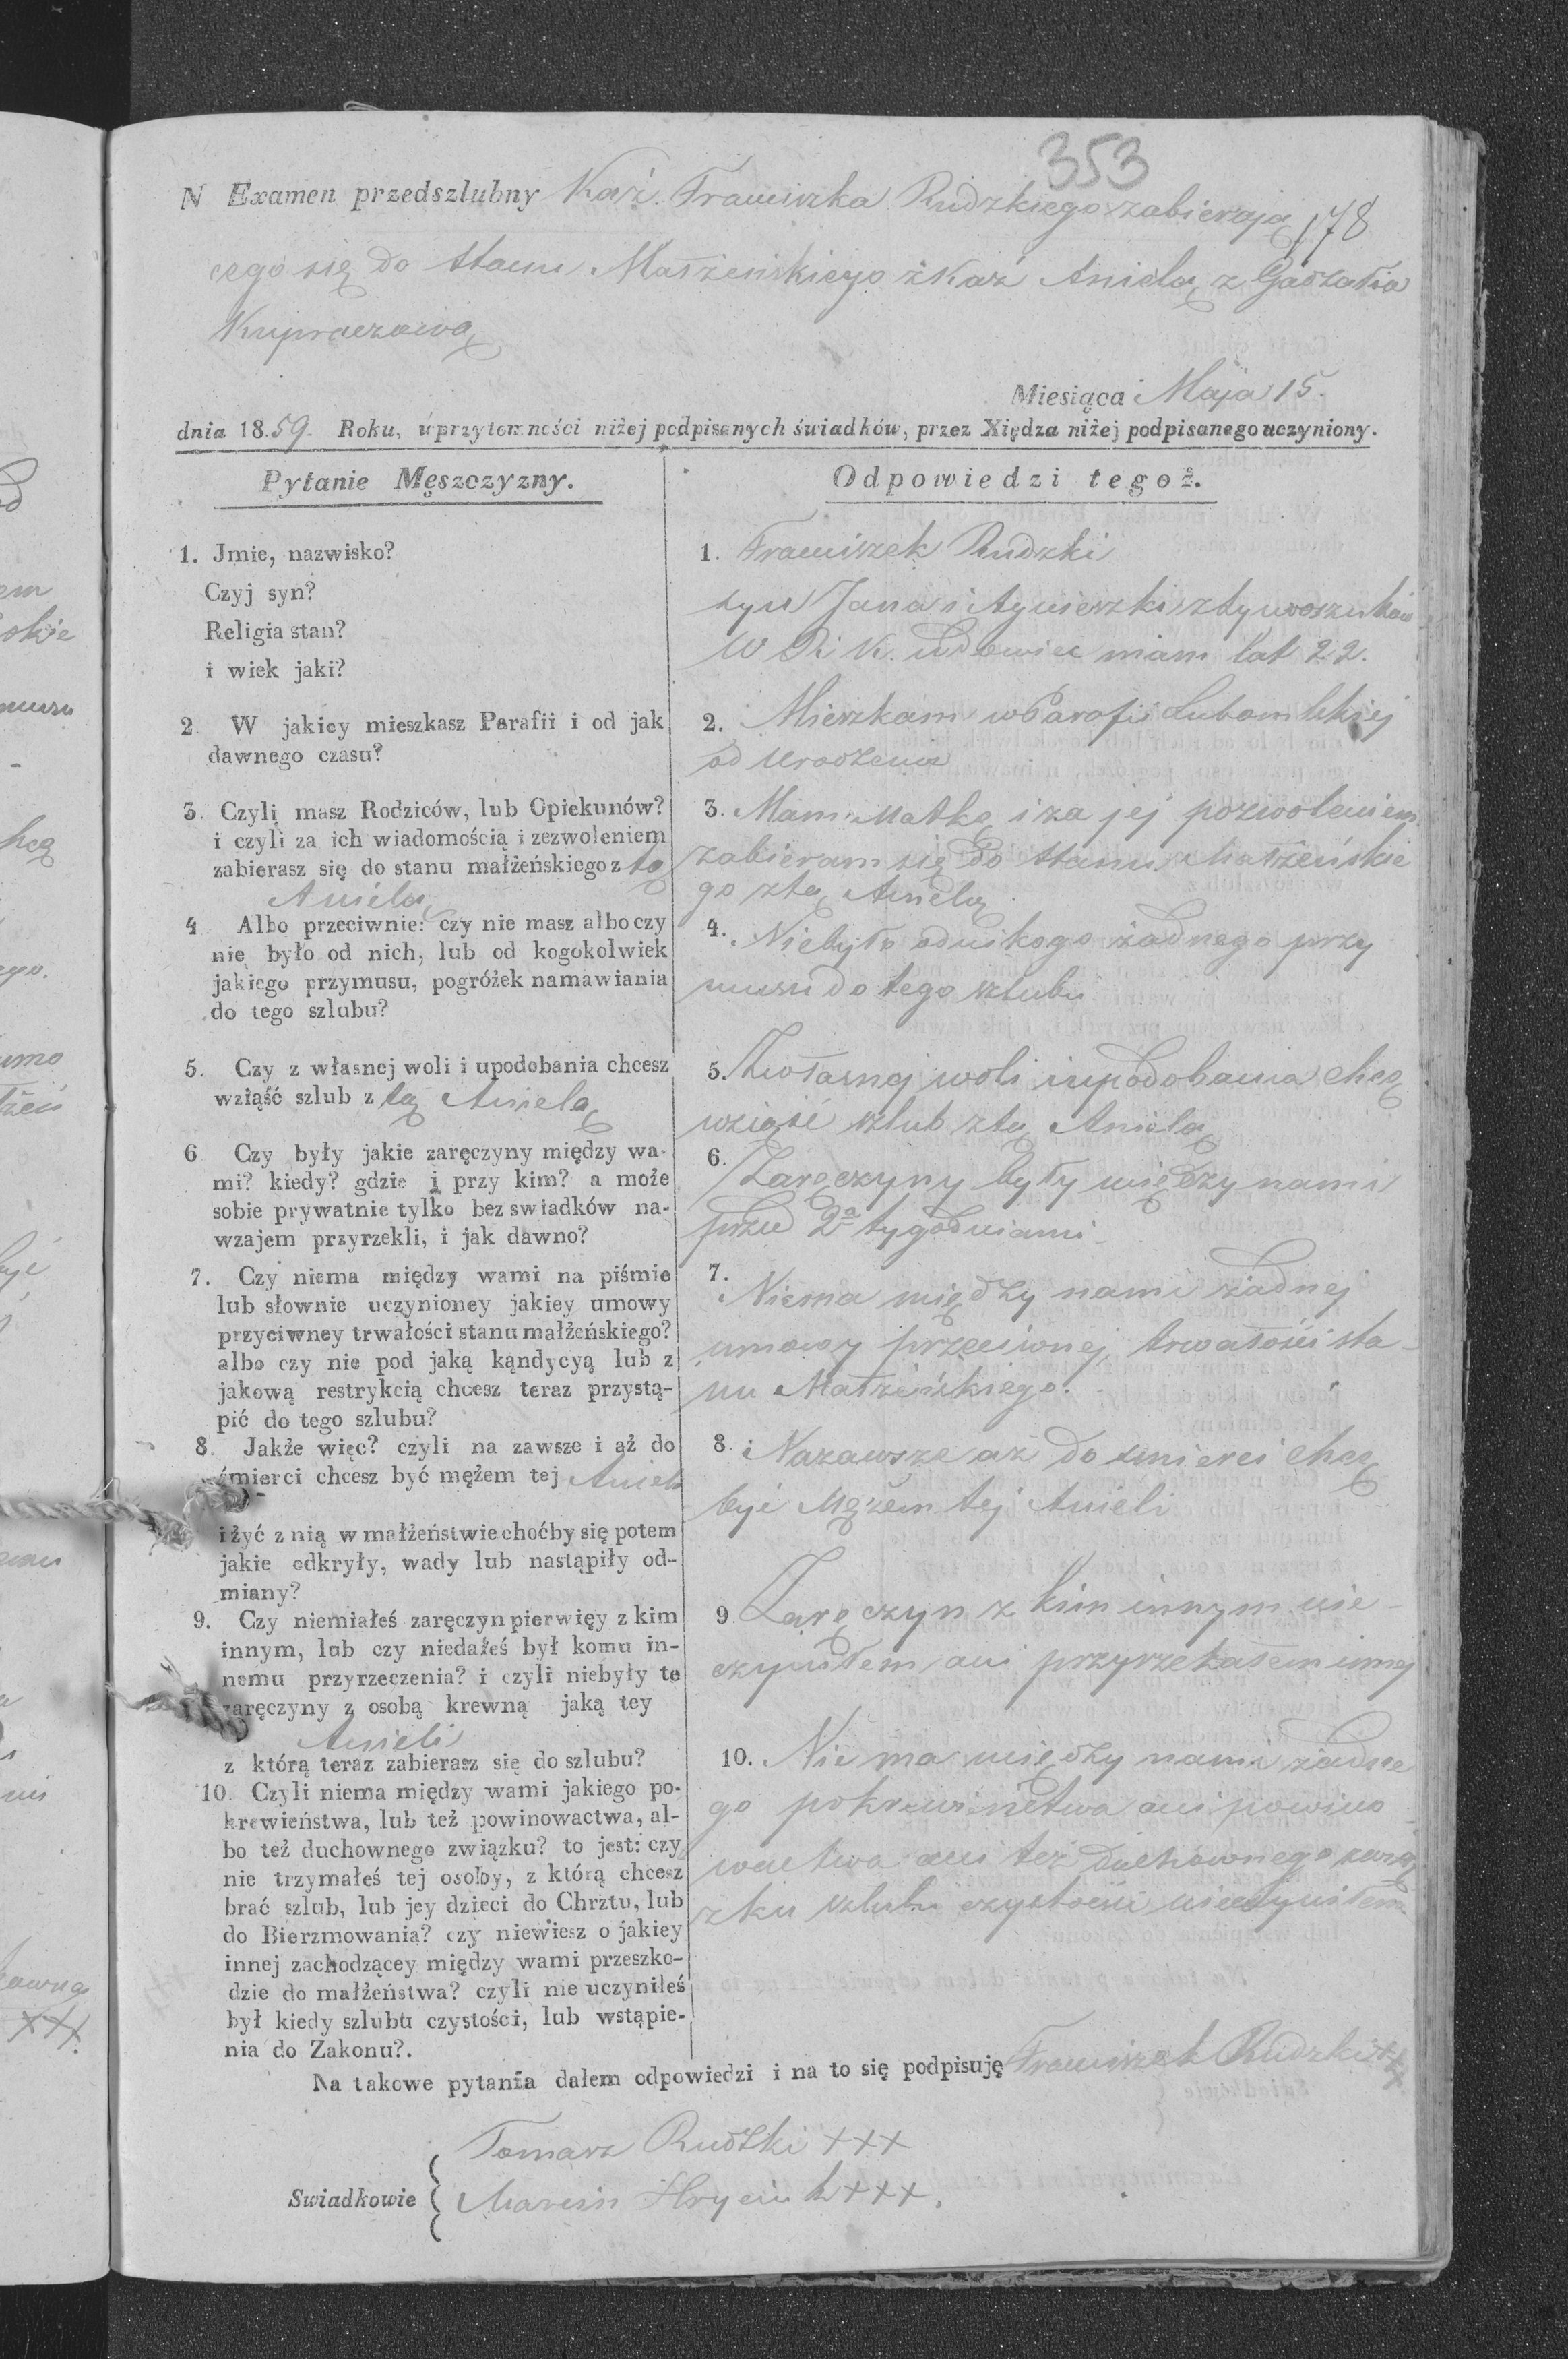 353
N Examen przedszlubny Kaź. Franciszka Rudzkiego zabierają
178
cego się do stanu Małżeńskiego z Kaź Anielą z
Kupraczową
Miesiąca Maja 15.
dnia 1859. Roku, w przytomności niżej podpisanych świadków, przez Xiędza niżej podpisanego uczyniony.
Pytanie Męszczyzny.
1. Jmie, nazwisko?
Czyj syn?
Religia stan?
i wiek jaki?
2. W jakiey mieszkasz Parafii i od jak
dawnego czasu?
3. Czyli masz Rodziców, lub Opiekunów?
i czyli za ich wiadomością i zezwoleniem
zabierasz się do stanu małżeńskiego z tą
Anielą
4 Albo przeciwnie: czy nie masz albo czy
nie było od nich, lub od kogokolwiek
jakiego przymusu, pogróżek namawiania
do tego szlubu?
5. Czy z własnej woli i upodobania chcesz
wziąść szlub z tą Anielą
6 Czy były jakie zaręczyny między wa-
mi? kiedy? gdzie i przy kim? a może
sobie prywatnie tylko bez swiadków na-
wzajem przyrzekli, i jak dawno?
7. Czy niema między wami na piśmie
lub słownie uczynioney jakiey umowy
przyciwney trwałości stanu małżeńskiego?
albo czy nie pod jaką kąndycyą lub z
jakową restrykcią chcesz teraz przystą-
pić do tego szlubu?
8. Jakże więc? czyli na zawsze i aż do
śmierci chcesz być mężem tej Anieli
i żyć z nią w małżeństwie choćby się potem
jakie odkryły, wady lub nastąpiły od-
miany?
9. Czy niemiałeś zaręczyn pierwięy z kim
innym, lub czy niedałeś był komu in-
nemu przyrzeczenia? i czyli niebyły to
zaręczyny z osobą krewną jaką tey
Anieli
z którą teraz zabierasz się do szlubu?
10. Czyli niema między wami jakiego po-
krewieństwa, lub też powinowactwa, al-
bo też duchownego związku? to jest: czy
nie trzymałeś tej osoby, z którą chcesz
brać szlub, lub jey dzieci do Chrztu, lub
do Bierzmowania? czy niewiesz o jakiey
innej zachodzącey między wami przeszko-
dzie do małżeństwa? czyli nie uczyniłeś
był kiedy szlubu czystości, lub wstąpie-
nia do Zakonu?.
Odpowiedzi tegoż.
1. Franciszek Rudzki
syn Jana i Agnieszki
W R i K. wdowiec mam lat 22.
2. Mieszkam w Parafii Lubomlskiej
od urodzenia
3. Mam Matkę i za jej pozwoleniem
zabieram się do stanu Małżeńskie
go z tą Anielą
4. Niebyło od nikogo żadnego przy
musu do tego szlubu
5. Z własnej woli i upodobania chcę
wziąść szlub z tą Anielą
6. Zaręczyny były między nami
przed 2a tygodniami
7. Niema między nami żadnej
umowy przeciwnej trwałości sta-
nu Małżeńskiego.
8. Nazawsze aż do śmierci chcę
być Mężem tej Anieli
9. Zaręczyn z kim innym nie-
czyniłem ani przyrzekałem innej
10. Nie ma między nami żadne
go pokrewieństwa ani powino
wactwa ani też duchownego zwią
zku szlubu czystości nieczyniłem
Na takowe pytania dałem odpowiedzi i na to się podpisuję Franciszek Rudzki +++
Swiadkowie
Tomasz Rudzki +++
Marcin Hryciuk +++.